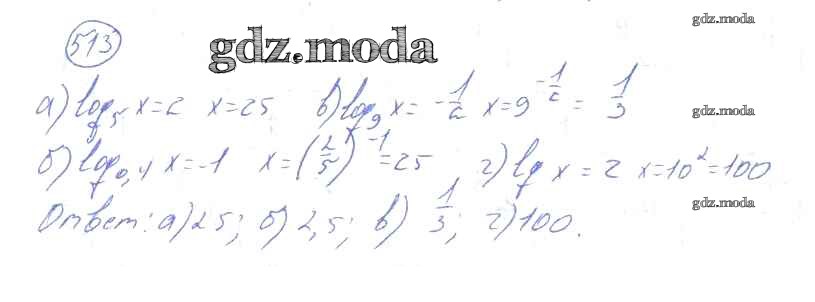 513
gdz.moda
gdz.moda
а) log₅ x = 2 x = 25 в) log₉ x = -1/2 x = 9^(-1/2) = 1/3
gdz.moda
б) log₀,₄ x = -1 x = (2/5)^(-1) = 25 г) lg x = 2 x = 10² = 100
gdz.moda
Ответ: а) 25; б) 2,5; в) 1/3; г) 100.